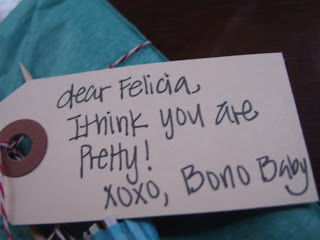 dear Felicia,
I think you are
Pretty!
XOXO, Bono Baby